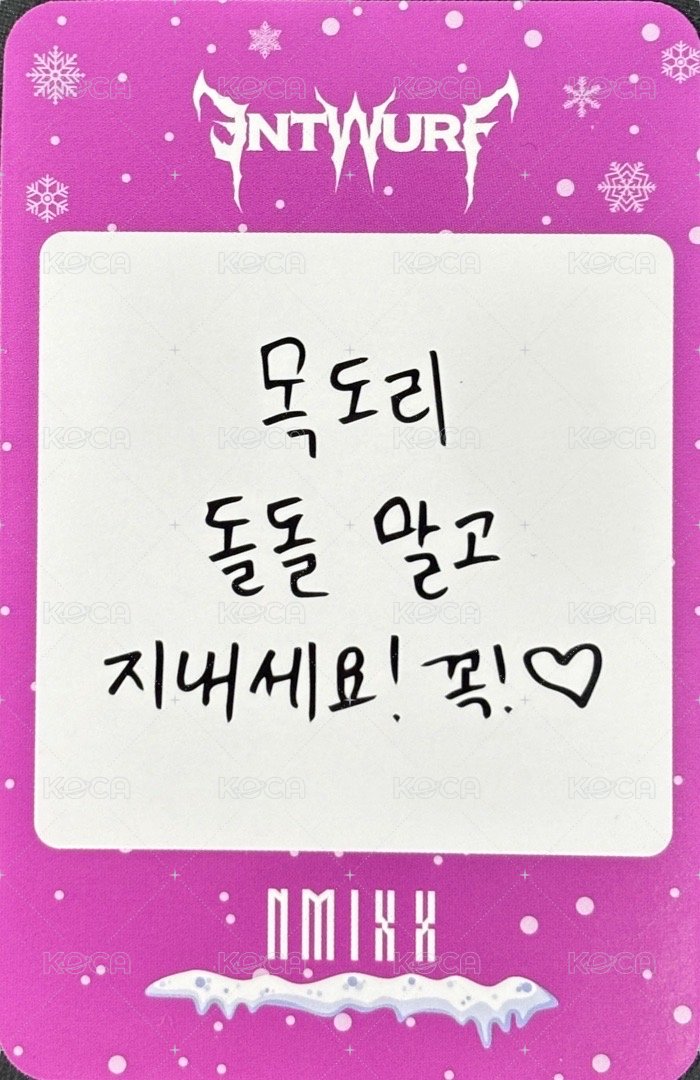 ENTWURF
목도리
돌돌 말고
지내세요! 꼭!♡
NMIXX
KOCA